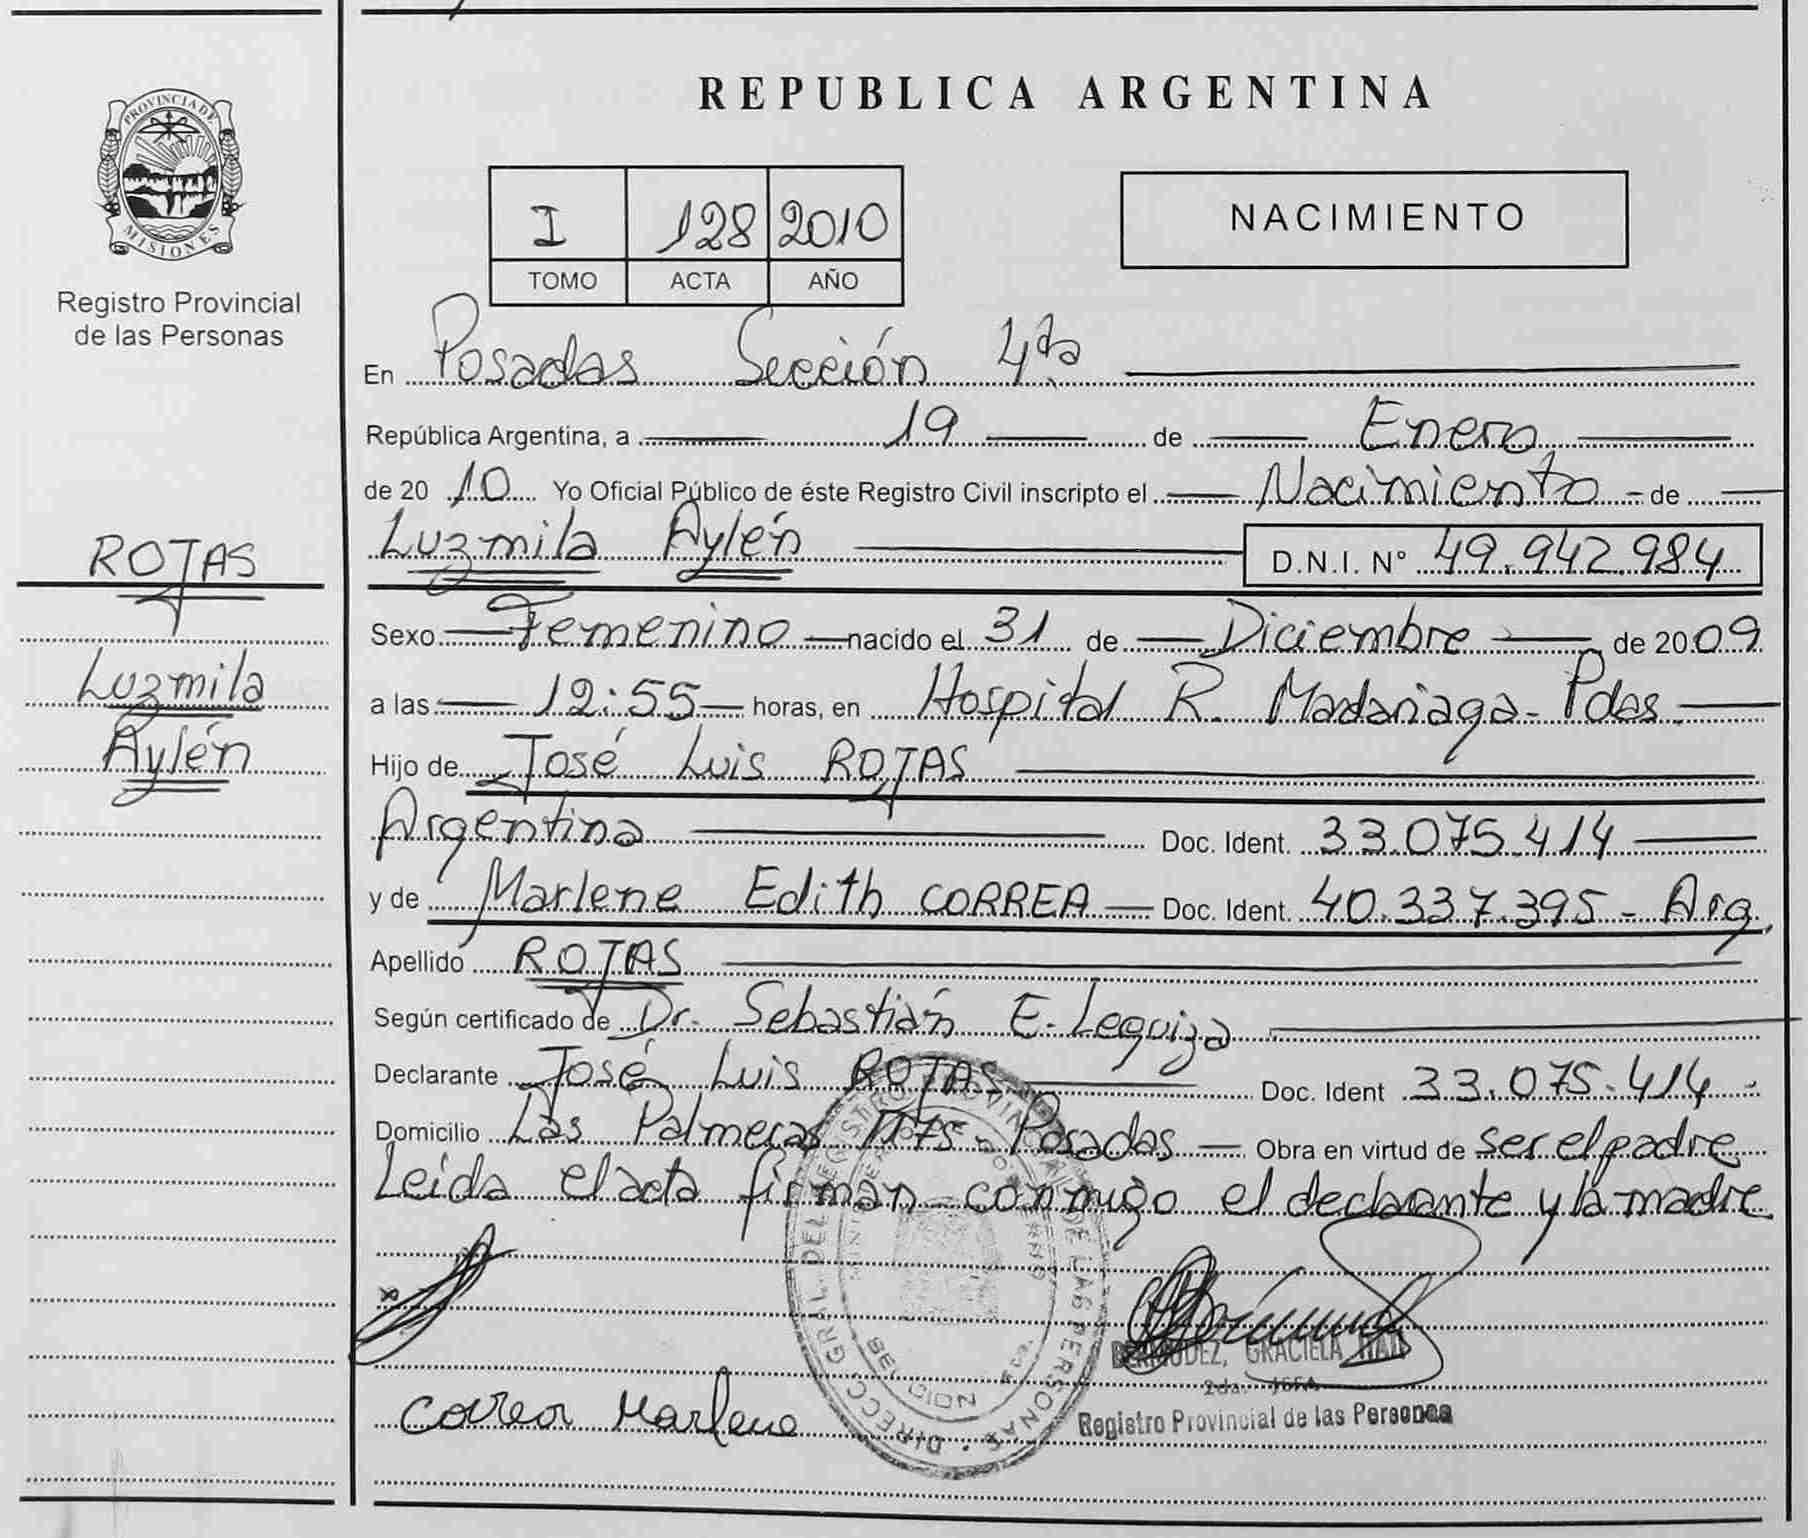 PROVINCIA DE
MISIONES
Registro Provincial
de las Personas
ROJAS
Luzmila
Aylén
REPUBLICA ARGENTINA
I 128 2010
TOMO ACTA AÑO
NACIMIENTO
En Posadas Sección 4da
República Argentina, a 19 de Enero
de 2010 Yo Oficial Público de éste Registro Civil inscripto el Nacimiento de
Luzmila Aylén D.N.I. N° 49.942.984
Sexo Femenino nacido el 31 de Diciembre de 2009
a las 12:55 horas, en Hospital R. Madariaga - Pdas.
Hijo de José Luis ROJAS
Argentina Doc. Ident. 33.075.414
y de Marlene Edith CORREA Doc. Ident. 40.337.395 - Arg.
Apellido ROJAS
Según certificado de Dr. Sebastián E. Leguiza
Declarante José Luis ROJAS Doc. Ident 33.075.414
Domicilio Las Palmeras Posadas Obra en virtud de ser el padre
Leída el acta firman conmigo el declarante y la madre
BERMUDEZ, GRACIELA
2da. JEFA
Correa Marlene
Registro Provincial de las Personas